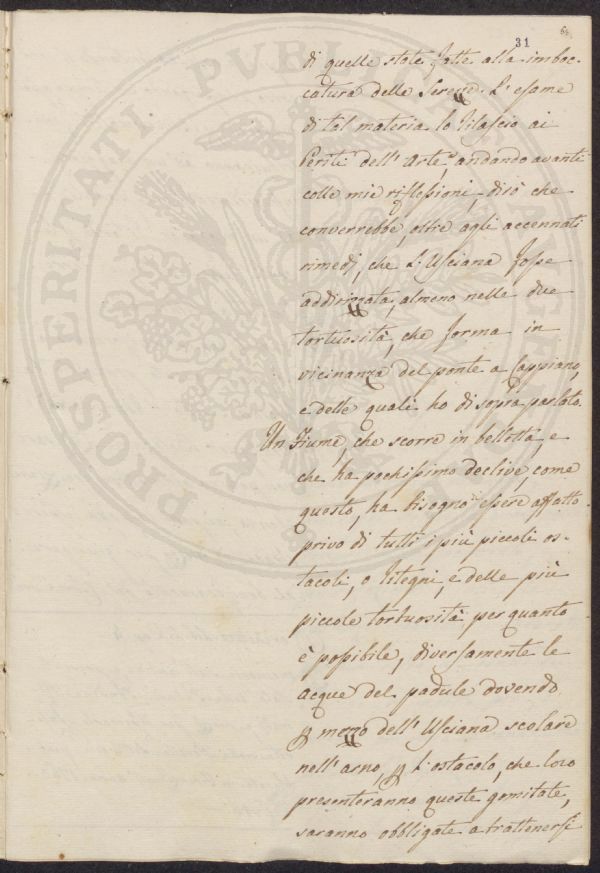 31
di quelle state fatte alla imboc-
catura delle Serezze. L'esame
di tal materia lo rilascio ai
Periti dell'Arte, andando avanti
colle mie riflessioni, dirò che
converrebbe, oltre agli accennati
rimedj, che L'Usciana fosse
addirizzata, almeno nelle due
tortuosità, che forma in
vicinanza del ponte a Cappiano,
e delle quali ho di sopra parlato.
Un Fiume, che scorre in belletta, e
che ha pochissimo declive, come
questo, ha bisogno essere affatto
privo di tutti i più piccoli os-
tacoli, o ritegni, e delle più
piccole tortuosità, per quanto
è possibile, diversamente le
acque del padule dovendo
p mezzo dell'Usciana scolare
nell'arno, p L'ostacolo, che loro
presenteranno queste gomitate,
saranno obbligate a trattenersi
PROSPERITATI PUBLICAE